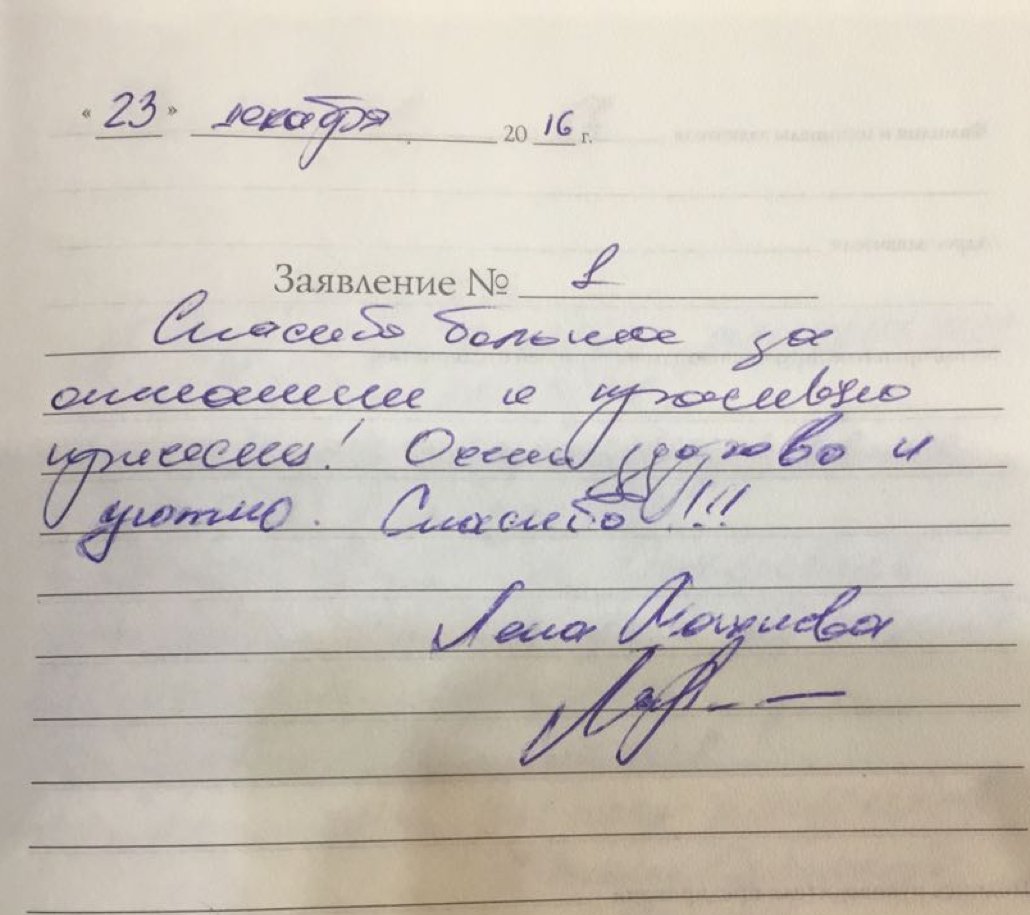 « 23 » декабря 2016 г.
Заявление № 1
Спасибо большое за
отношение и красивую
причёску! Очень здорово и
уютно. Спасибо!!!
Лена